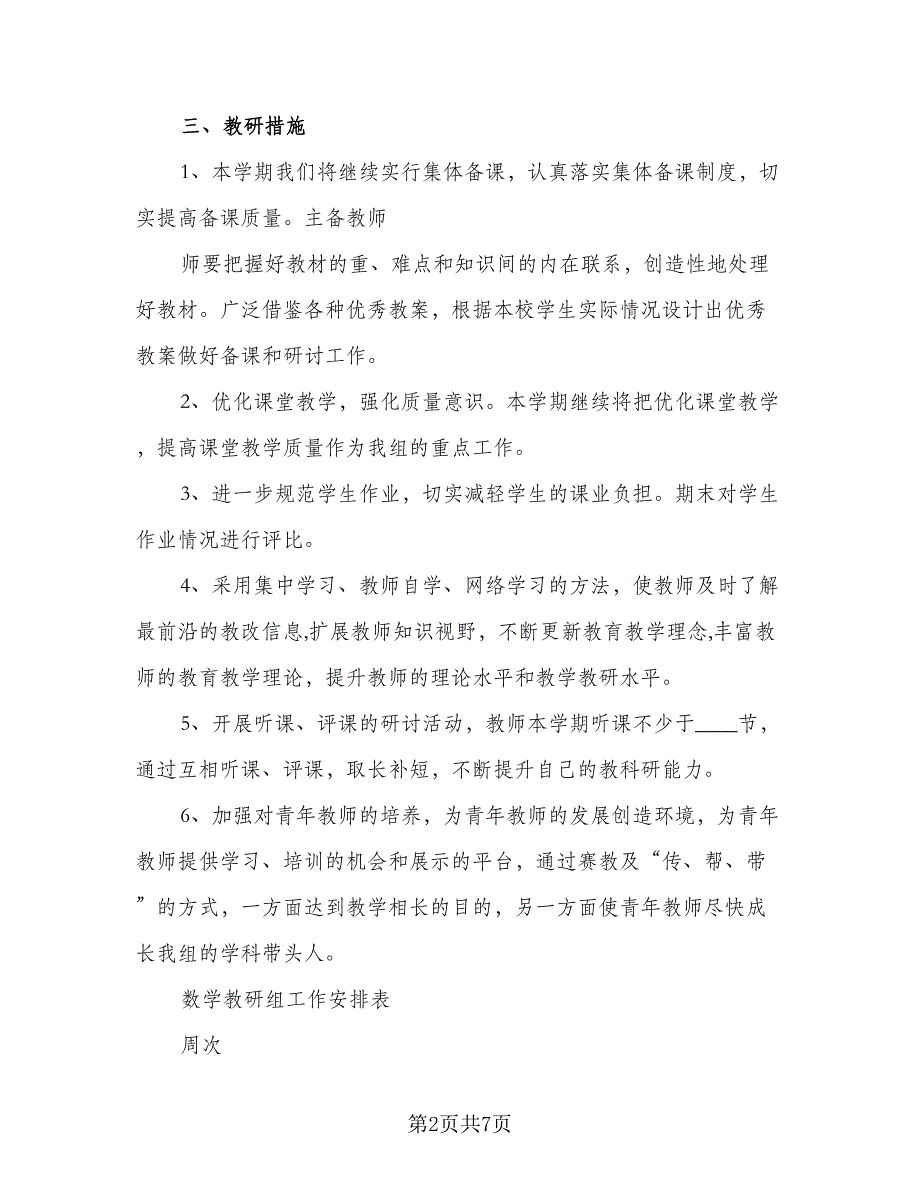 三、教研措施
1、本学期我们将继续实行集体备课，认真落实集体备课制度，切
实提高备课质量。主备教师
师要把握好教材的重、难点和知识间的内在联系，创造性地处理
好教材。广泛借鉴各种优秀教案，根据本校学生实际情况设计出优秀
教案做好备课和研讨工作。
2、优化课堂教学，强化质量意识。本学期继续将把优化课堂教学
，提高课堂教学质量作为我组的重点工作。
3、进一步规范学生作业，切实减轻学生的课业负担。期末对学生
作业情况进行评比。
4、采用集中学习、教师自学、网络学习的方法，使教师及时了解
最前沿的教改信息,扩展教师知识视野，不断更新教育教学理念,丰富教
师的教育教学理论，提升教师的理论水平和教学教研水平。
5、开展听课、评课的研讨活动，教师本学期听课不少于____节，
通过互相听课、评课，取长补短，不断提升自己的教科研能力。
6、加强对青年教师的培养，为青年教师的发展创造环境，为青年
教师提供学习、培训的机会和展示的平台，通过赛教及“传、帮、带
”的方式，一方面达到教学相长的目的，另一方面使青年教师尽快成
长我组的学科带头人。
数学教研组工作安排表
周次
第2页共7页